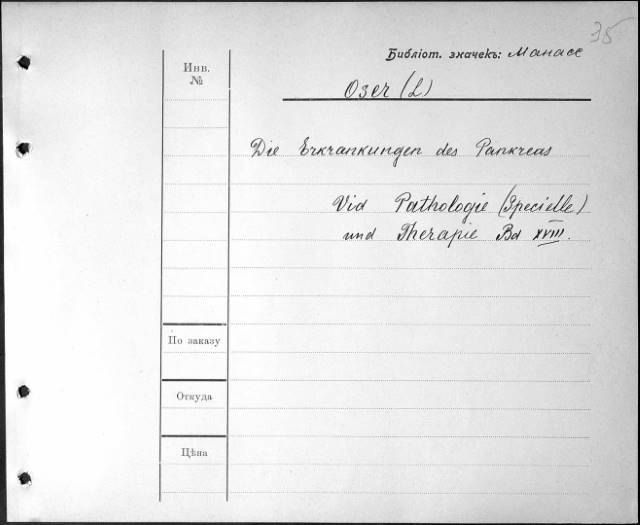 35
Библіот. значекъ: Манасс
Инв.
№
Oser (L)
Die Erkrankungen des Pankreas
Vid Pathologie (Specielle)
und Therapie Bd XVIII.
По заказу
Откуда
Цѣна